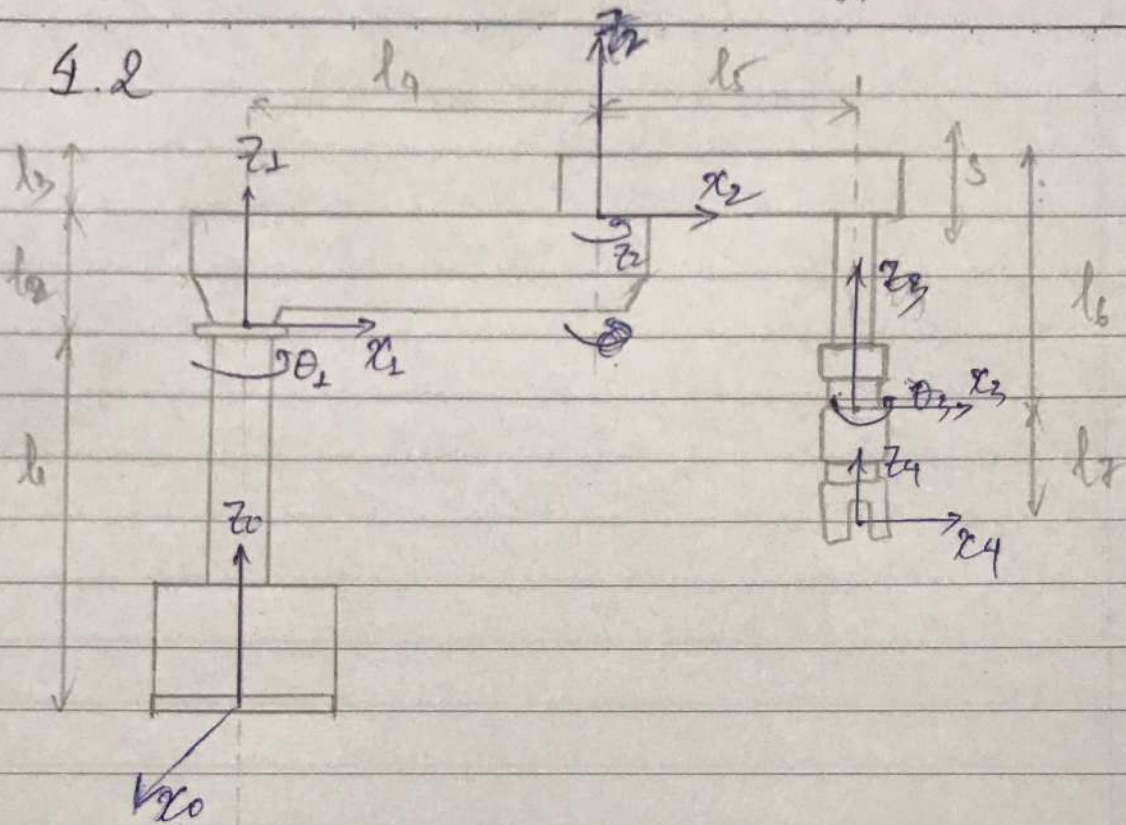 4.2
l4
l5
z2
z1
l3
x2
s
l2
z2
z3
l6
x1
θ1
θ3
x3
l1
z4
l7
z0
x4
x0